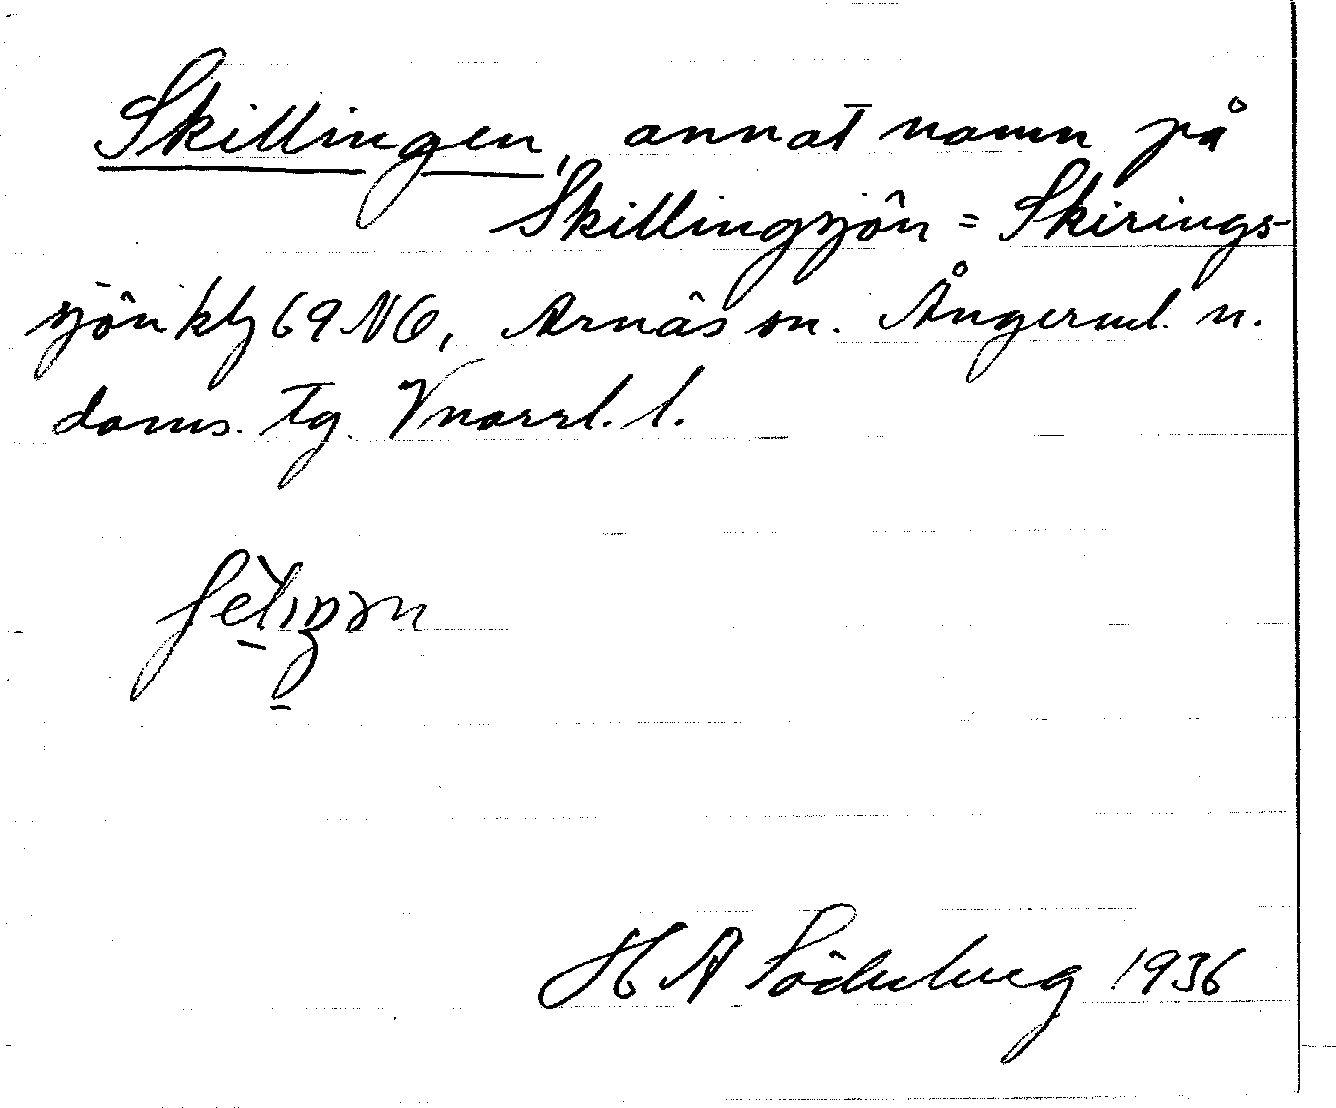 Skillingen, annat namn på
Skillingsjön = Skirings-
sjön kbl 69 NO, Arnäs sn. Ångerml. n.
doms. tg. Vnorrl. l.
H A Söderberg 1936